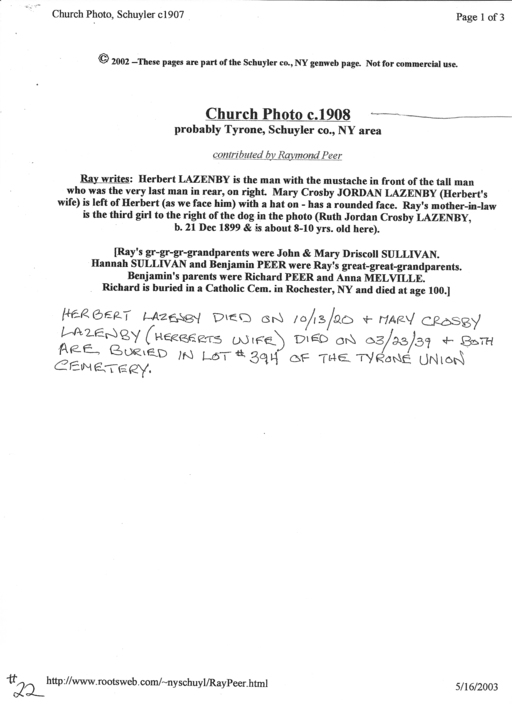 Church Photo, Schuyler c1907
Page 1 of 3
© 2002 --These pages are part of the Schuyler co., NY genweb page. Not for commercial use.
Church Photo c.1908
probably Tyrone, Schuyler co., NY area
contributed by Raymond Peer
Ray writes: Herbert LAZENBY is the man with the mustache in front of the tall man
who was the very last man in rear, on right. Mary Crosby JORDAN LAZENBY (Herbert's
wife) is left of Herbert (as we face him) with a hat on - has a rounded face. Ray's mother-in-law
is the third girl to the right of the dog in the photo (Ruth Jordan Crosby LAZENBY,
b. 21 Dec 1899 & is about 8-10 yrs. old here).
[Ray's gr-gr-gr-grandparents were John & Mary Driscoll SULLIVAN.
Hannah SULLIVAN and Benjamin PEER were Ray's great-great-grandparents.
Benjamin's parents were Richard PEER and Anna MELVILLE.
Richard is buried in a Catholic Cem. in Rochester, NY and died at age 100.]
HERBERT LAZENBY DIED ON 10/13/20 + MARY CROSBY
LAZENBY (HERBERTS WIFE) DIED ON 03/23/39 + BOTH
ARE BURIED IN LOT #394 OF THE TYRONE UNION
CEMETERY.
#22
http://www.rootsweb.com/~nyschuyl/RayPeer.html
5/16/2003